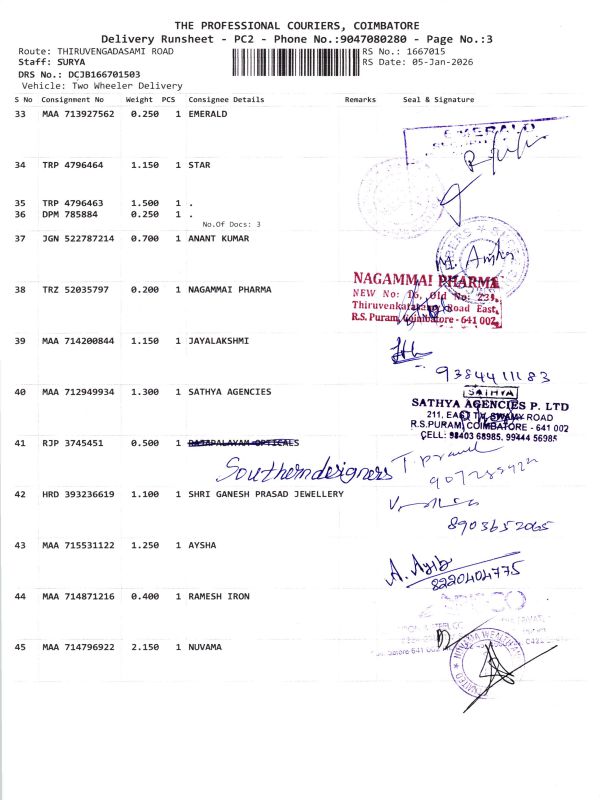 THE PROFESSIONAL COURIERS, COIMBATORE
Delivery Runsheet - PC2 - Phone No.:9047080280 - Page No.:3
Route: THIRUVENGADASAMI ROAD RS No.: 1667015
Staff: SURYA RS Date: 05-Jan-2026
DRS No.: DCJB166701503
Vehicle: Two Wheeler Delivery
S No Consignment No Weight PCS Consignee Details Remarks Seal & Signature
33 MAA 713927562 0.250 1 EMERALD
EMERALD
34 TRP 4796464 1.150 1 STAR
35 TRP 4796463 1.500 1 .
36 DPM 785884 0.250 1 .
No.Of Docs: 3
37 JGN 522787214 0.700 1 ANANT KUMAR
38 TRZ 52035797 0.200 1 NAGAMMAI PHARMA
NAGAMMAI PHARMA
NEW No: 16, Old No: 231,
Thiruvenkatasamy Road East,
R.S. Puram, Coimbatore - 641 002.
39 MAA 714200844 1.150 1 JAYALAKSHMI
9384411183
40 MAA 712949934 1.300 1 SATHYA AGENCIES
SATHYA
SATHYA AGENCIES P. LTD
211, EAST T.V. SWAMY ROAD
R.S.PURAM, COIMBATORE - 641 002
CELL: 98403 68985, 99444 56985
41 RJP 3745451 0.500 1 RAJAPALAYAM OPTICALS
Southerndesigners
42 HRD 393236619 1.100 1 SHRI GANESH PRASAD JEWELLERY
8903652065
43 MAA 715531122 1.250 1 AYSHA
A. Ayib
8220404775
44 MAA 714871216 0.400 1 RAMESH IRON
45 MAA 714796922 2.150 1 NUVAMA
NUVAMA WEALTH